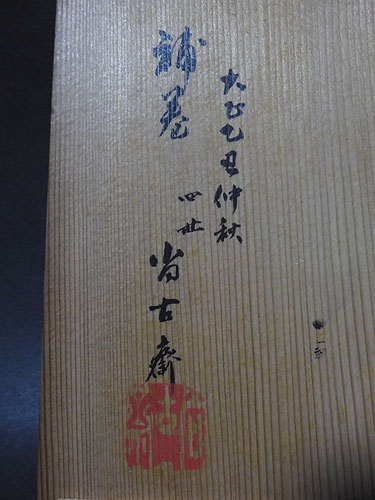 大正乙丑仲秋
四世
補
尚古齋